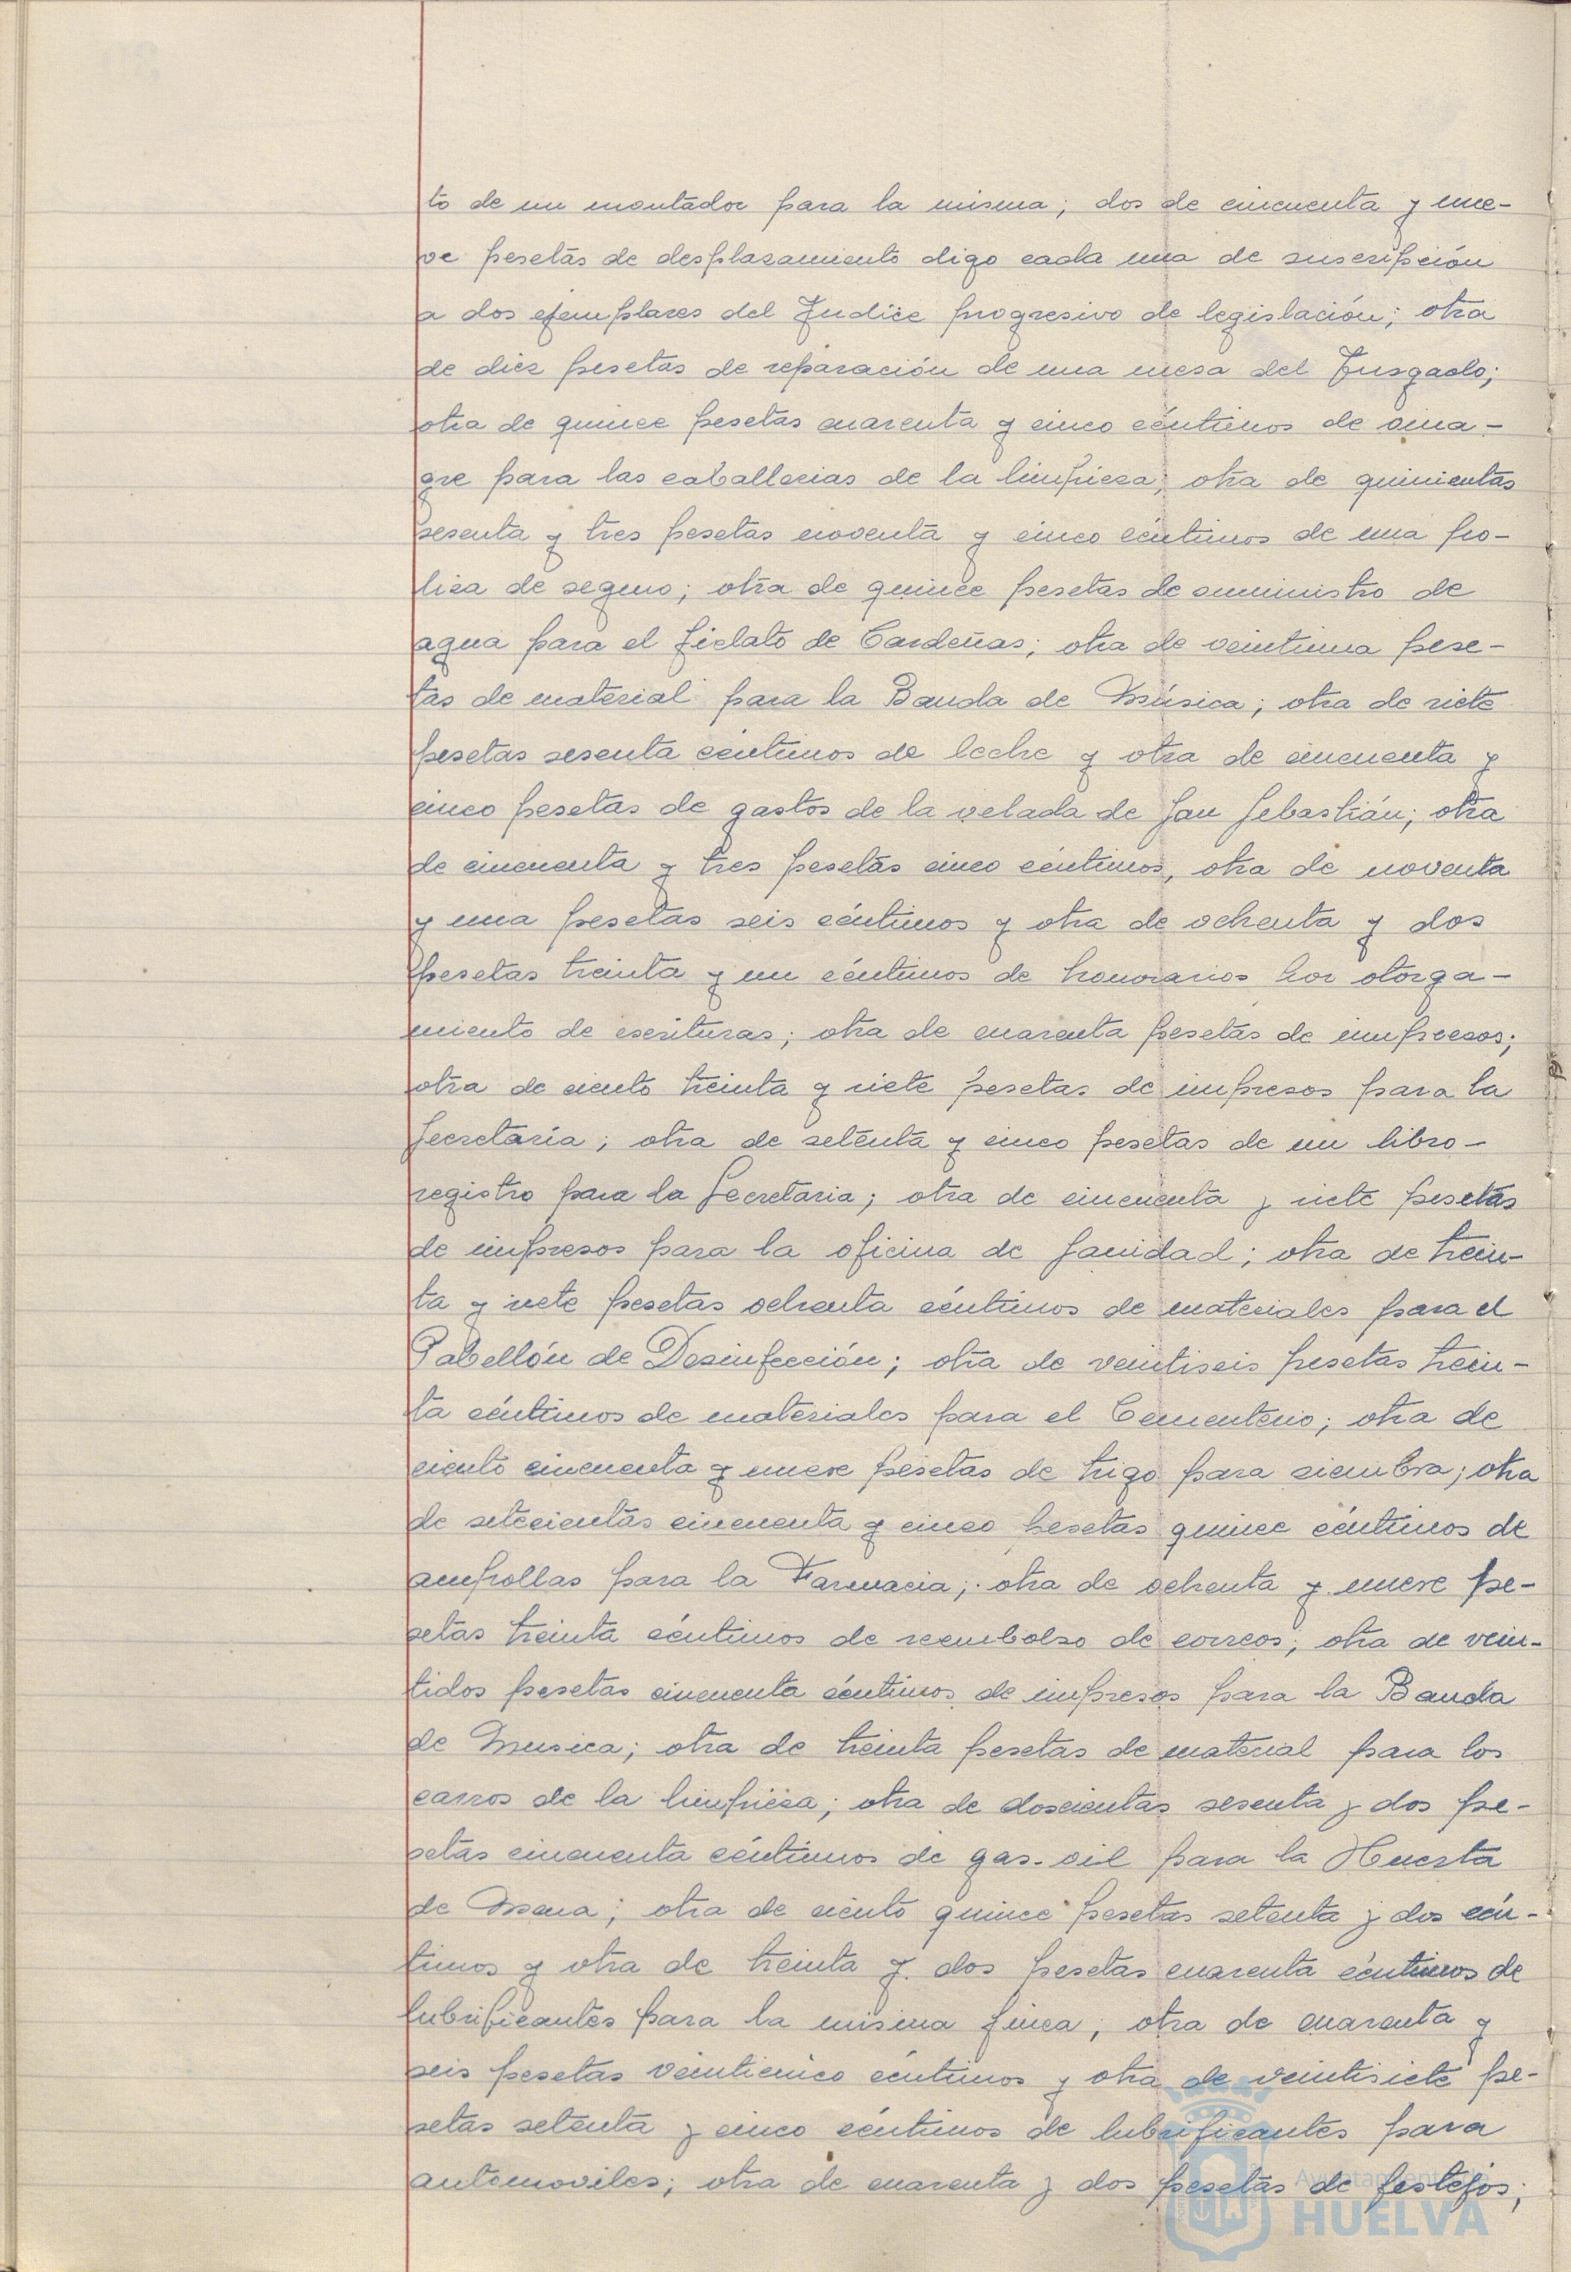 to de un montador para la misma; dos de cincuenta y nue-
ve pesetas de desplazamiento digo cada una de suscripción
a dos ejemplares del Indice progresivo de legislación; otra
de diez pesetas de reparación de una mesa del Juzgado;
otra de quince pesetas cuarenta y cinco céntimos de vina-
gre para las caballerias de la limpieza; otra de quinientas
sesenta y tres pesetas noventa y cinco céntimos de una po-
liza de seguro; otra de quince pesetas de suministro de
agua para el fielato de Cardeñas; otra de veintiuna pese-
tas de material para la Banda de Música; otra de siete
pesetas sesenta céntimos de leche y otra de cincuenta y
cinco pesetas de gastos de la velada de San Sebastián; otra
de cincuenta y tres pesetas cinco céntimos, otra de noventa
y una pesetas seis céntimos y otra de ochenta y dos
pesetas treinta y un céntimos de honorarios por otorga-
miento de escrituras; otra de cuarenta pesetas de impresos;
otra de ciento treinta y siete pesetas de impresos para la
Secretaría; otra de setenta y cinco pesetas de un libro-
registro para la Secretaria; otra de cincuenta y siete pesetas
de impresos para la oficina de Sanidad; otra de trein-
ta y siete pesetas ochenta céntimos de materiales para el
Pabellón de Desinfección; otra de veintiseis pesetas trein-
ta céntimos de materiales para el Cementerio; otra de
ciento cincuenta y nueve pesetas de trigo para siembra; otra
de setecientas cincuenta y cinco pesetas quince céntimos de
ampollas para la Farmacia; otra de ochenta y nueve pe-
setas treinta céntimos de reembolso de correos; otra de vein-
tidos pesetas cincuenta céntimos de impresos para la Banda
de Musica; otra de treinta pesetas de material para los
carros de la limpieza; otra de doscientas sesenta y dos pe-
setas cincuenta céntimos de gas-oil para la Huerta
de Mena; otra de ciento quince pesetas setenta y dos cén-
timos y otra de treinta y dos pesetas cuarenta céntimos de
lubrificantes para la misma finca; otra de cuarenta y
seis pesetas veinticinco céntimos y otra de veintisiete pe-
setas setenta y cinco céntimos de lubrificantes para
automoviles; otra de cuarenta y dos pesetas de festejos;
Ayuntamiento de
HUELVA